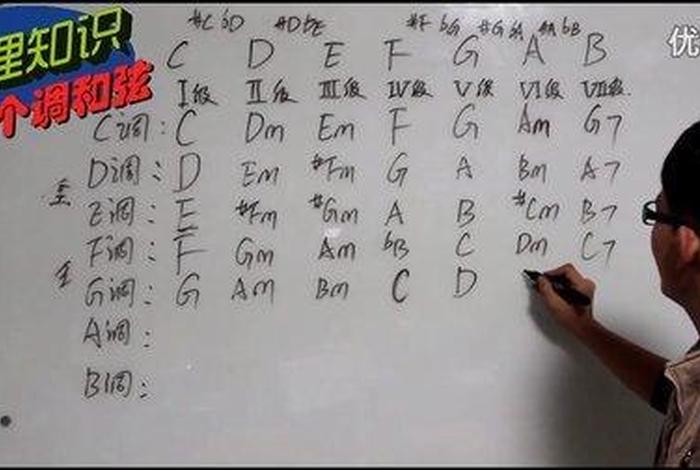 里知识
个调和弦
优
#C bD #D bE #F bG #G bA #A bB
C D E F G A B
I级 II级 III级 IV级 V级 VI级 VII级
C调: C Dm Em F G Am G7
D调: D Em #Fm G A Bm A7
E调: E #Fm #Gm A B #Cm B7
F调: F Gm Am bB C Dm C7
G调: G Am Bm C D
A调:
B调: